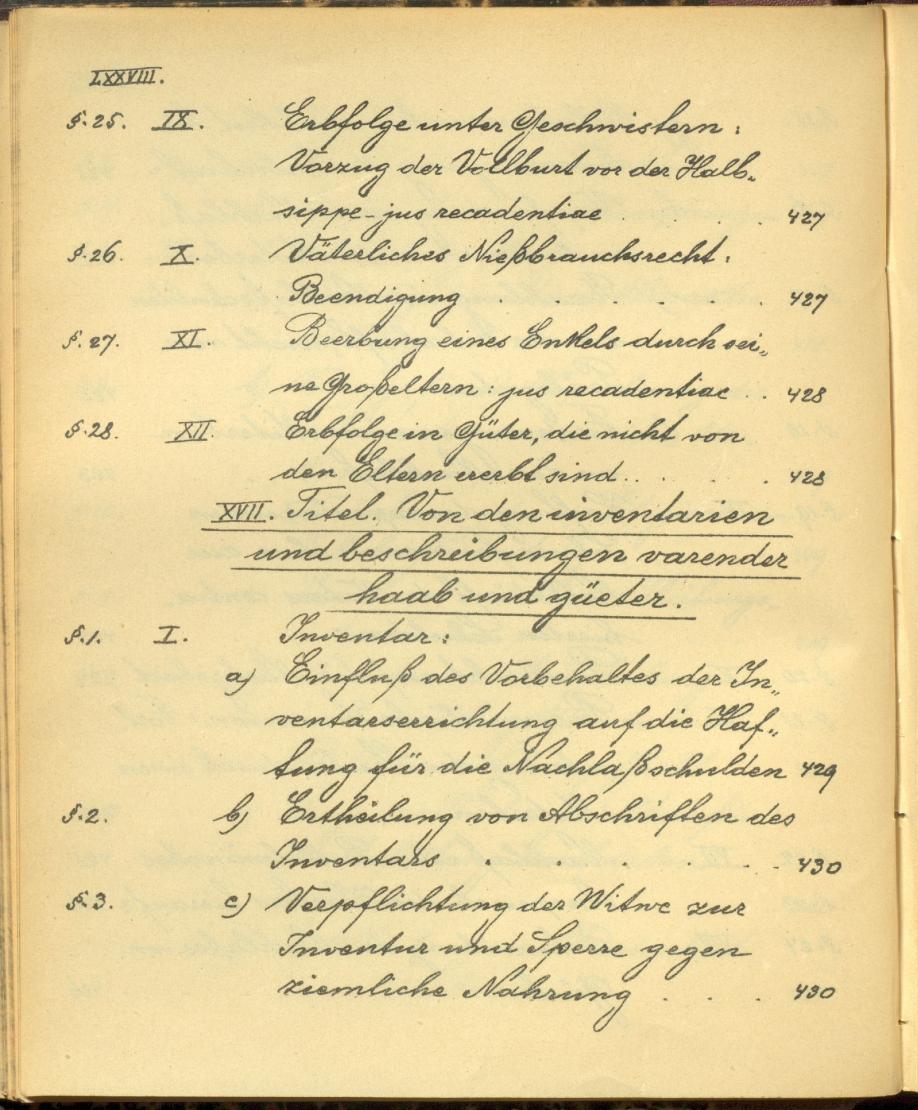 LXXVIII.
§.25. IX. Erbfolge unter Geschwistern:
Vorzug der Vollburt vor der Halb„
sippe - jus recadentiae . . . 427
§.26. X. Väterliches Nießbrauchsrecht:
Beendigung . . . 427
§.27. XI. Beerbung eines Enkels durch sei„
ne Großeltern: jus recadentiae . . 428
§.28. XII. Erbfolge in Güter, die nicht von
den Eltern ererbt sind . . . . . 428
XVII. Titel. Von den inventarien
und beschreibungen varender
haab und güeter.
§.1. I. Inventar:
a) Einfluß des Vorbehaltes der In„
ventarserrichtung auf die Haf„
tung für die Nachlaßschulden 429
§.2. b) Ertheilung von Abschriften des
Inventars . . . . . . . 430
§.3. c) Verpflichtung der Witwe zur
Inventur und Sperre gegen
ziemliche Nahrung . . . 430